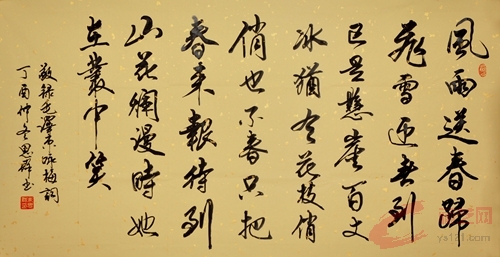 風雨送春歸
飛雪迎春到
已是懸崖百丈
冰猶有花枝俏
俏也不春只把
春來報待到
山花爛漫時她
在叢中笑
敬錄毛澤東詠梅詞
丁酉仲冬思書